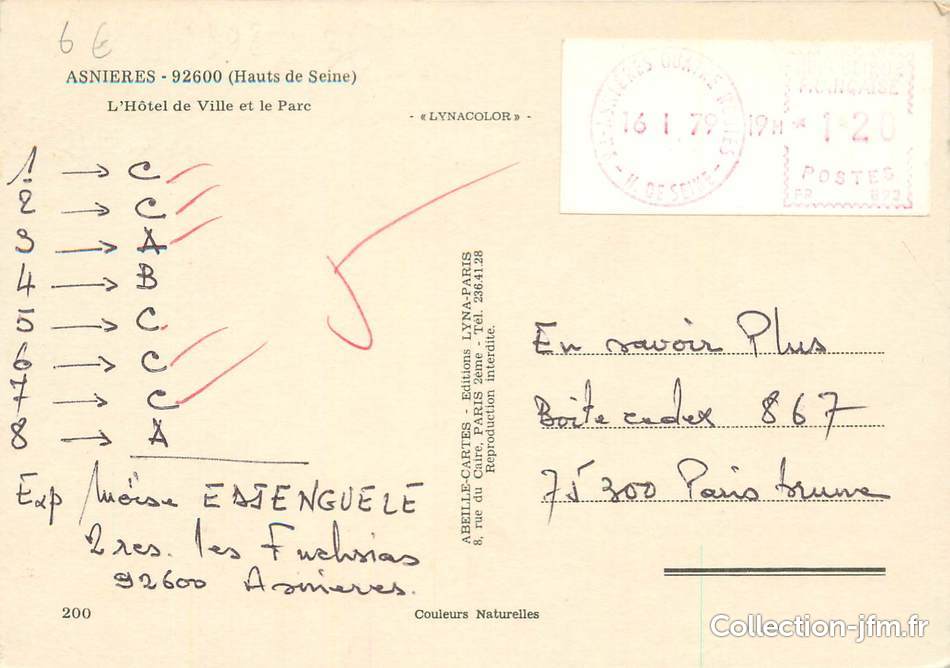 6 €
ASNIERES - 92600 (Hauts de Seine)
L'Hôtel de Ville et le Parc
- « LYNACOLOR » -
16 1 79 19H * 1.20
POSTES
H. DE SEINE
1 → C
2 → C
3 → A
4 → B
5 → C
6 → C
7 → C
8 → A
5
Exp Moïse
2 res. les Fuchsias
92600 Asnieres.
ABEILLE-CARTES - Editions LYNA-PARIS
8, rue du Caire, PARIS 2eme - Tél. 236.41.28
Reproduction interdite.
En savoir Plus
Boite cedex 867
75300 Paris brune
200
Couleurs Naturelles
Collection-jfm.fr